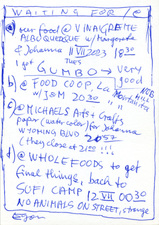 WAITING FOR
a) very food @ VINAIGRETTE
ALBUQUERQUE w/ Margareta
& Johanna 11 VII 2023 1830
I got TUES
GUMBO → very good
b) @ FOOD CO.OP, La Montanita
w/ J & M 2030 NOB HILL
c) @ MICHAELS Arts + Crafts
paper (watercolor) for Johanna
WYOMING BLVD 2057
(they close at 2100 !!!)
d) @ WHOLE FOODS to get
final things, back to
SUFI CAMP 12 VII 0030
NO ANIMALS ON STREET, strange